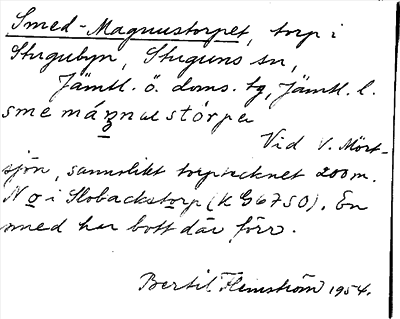 Smed-Magnustorpet, torp i
Stugubyn, Stuguns sn,
Jämtl. ö. doms. tg, Jämtl. l.
Vid V. Mört-
sjön, sannolikt torptecknet 200 m.
N o i Slobackstorp (K G6750). En
smed har bott där förr.
Bertil Flemström 1954.